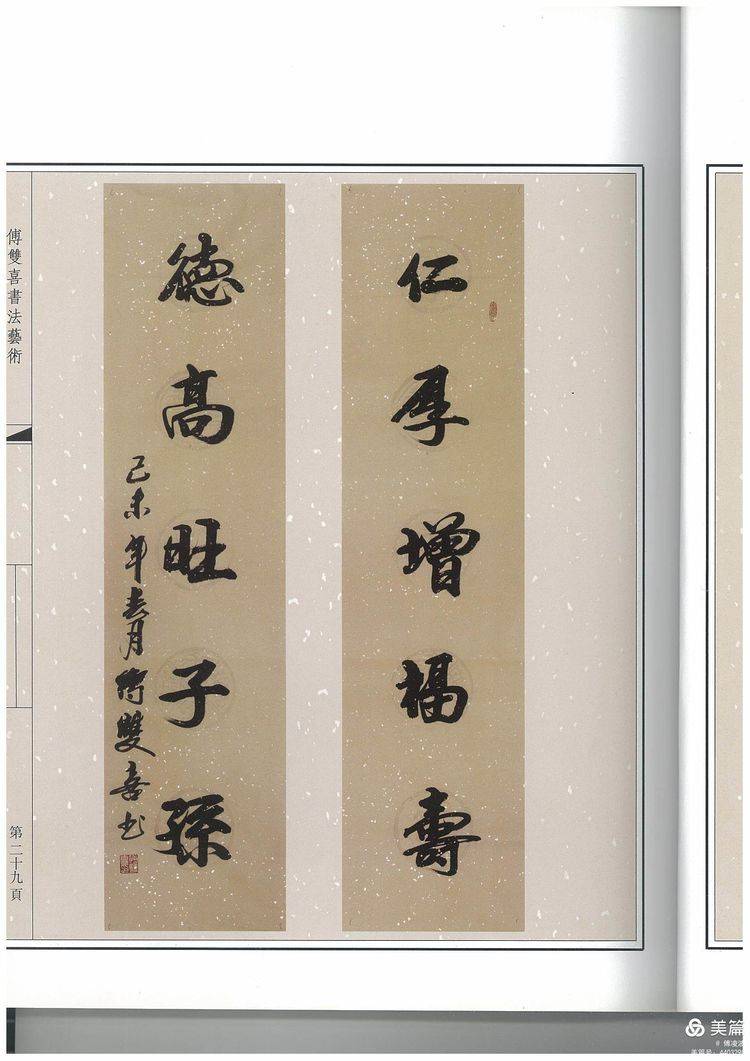 仁厚增福壽
德高旺子孫
己未年春月傅雙喜书
傅雙喜書法藝術
第二十九頁
美篇